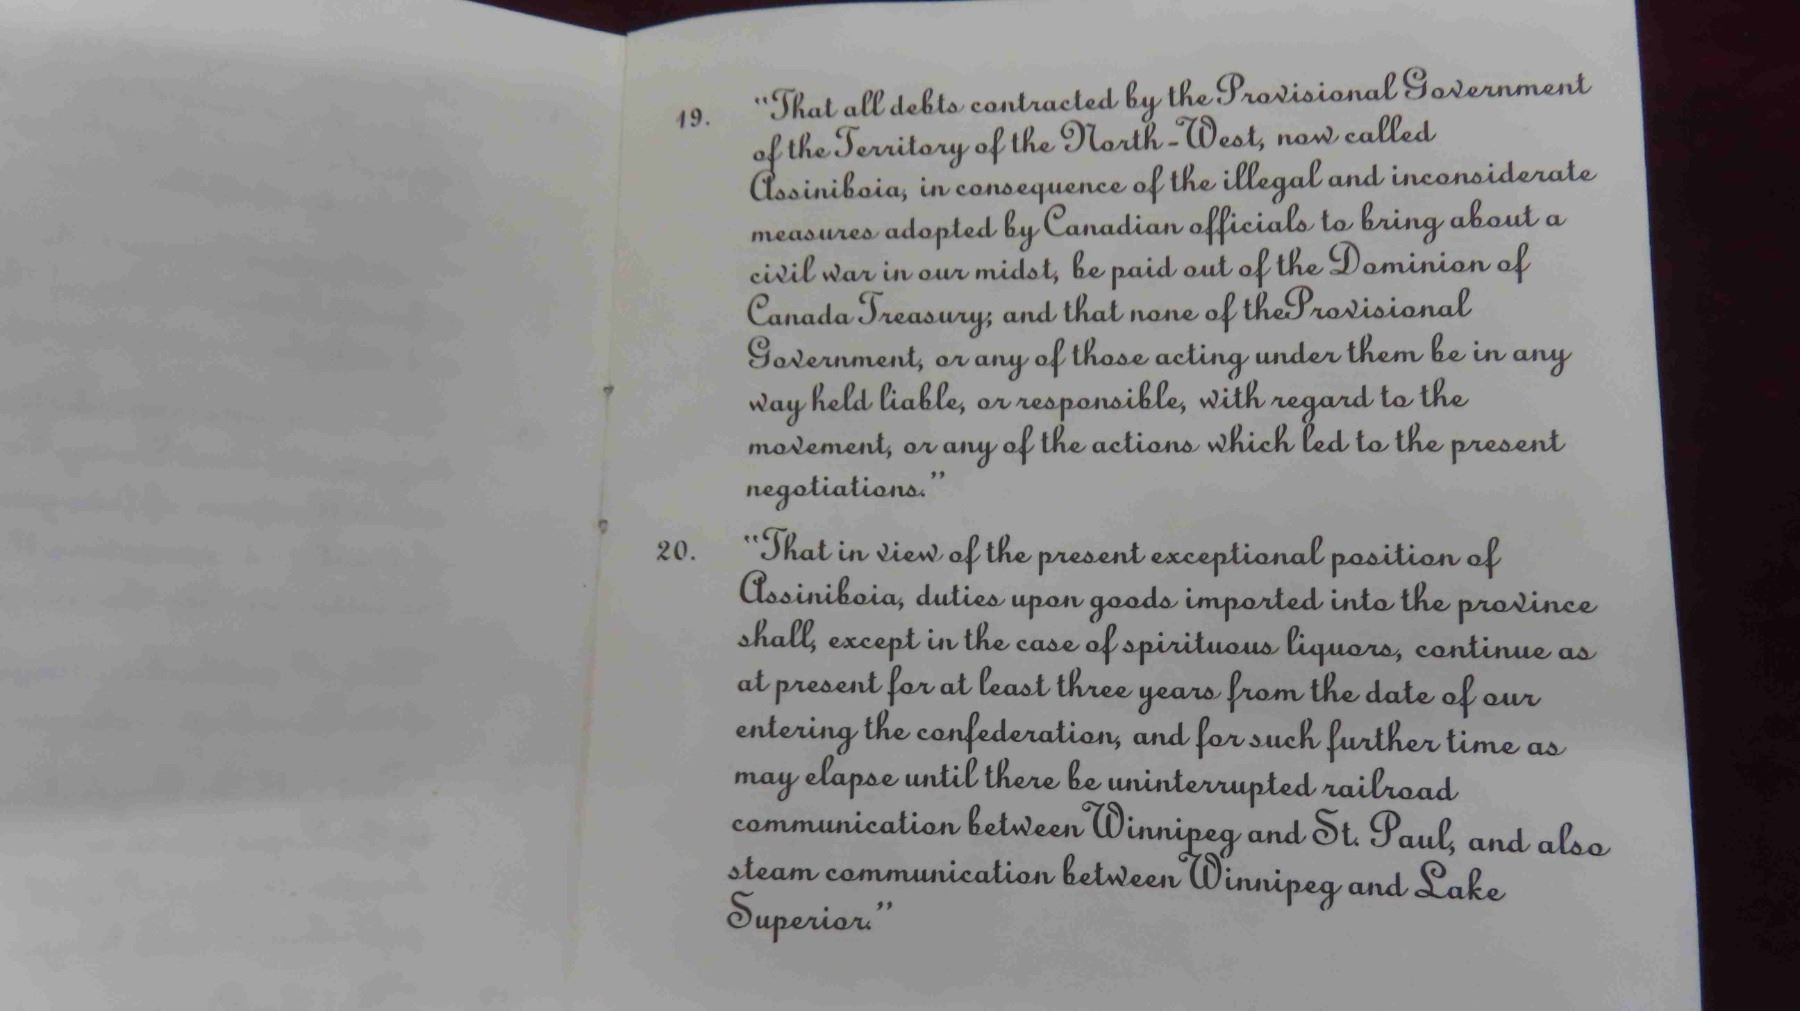 19. "That all debts contracted by the Provisional Government
of the Territory of the North-West, now called
Assiniboia, in consequence of the illegal and inconsiderate
measures adopted by Canadian officials to bring about a
civil war in our midst, be paid out of the Dominion of
Canada Treasury; and that none of the Provisional
Government, or any of those acting under them be in any
way held liable, or responsible, with regard to the
movement, or any of the actions which led to the present
negotiations."
20. "That in view of the present exceptional position of
Assiniboia, duties upon goods imported into the province
shall, except in the case of spirituous liquors, continue as
at present for at least three years from the date of our
entering the confederation, and for such further time as
may elapse until there be uninterrupted railroad
communication between Winnipeg and St. Paul, and also
steam communication between Winnipeg and Lake
Superior."